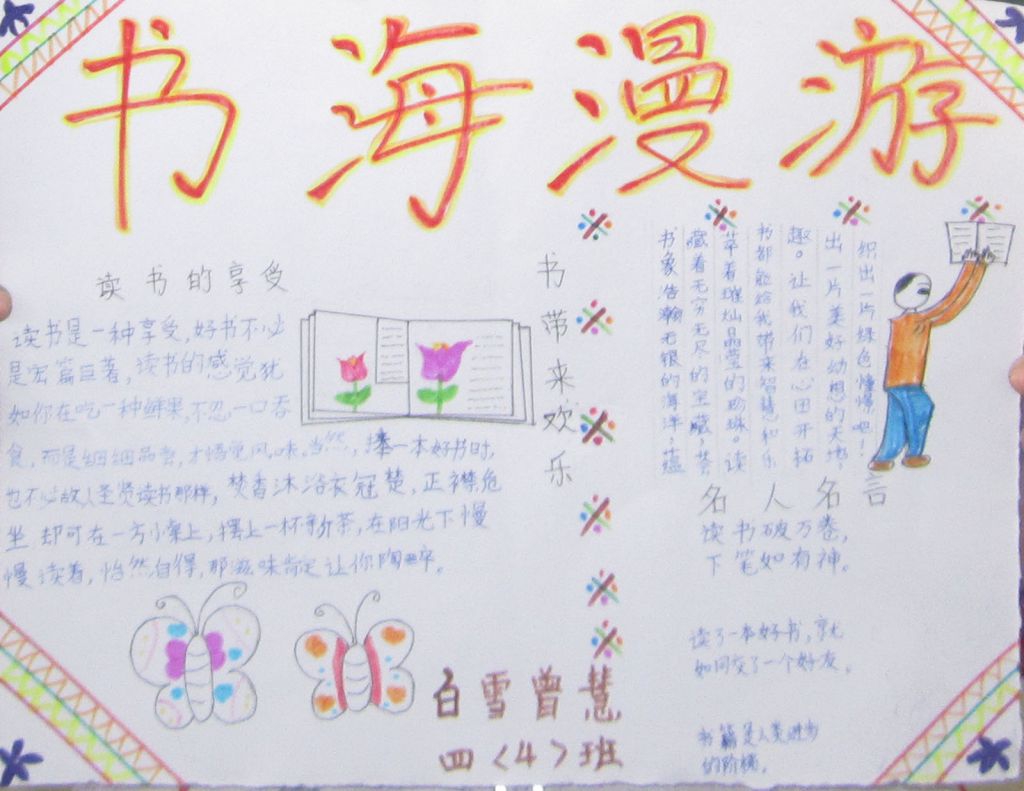 书海漫游
读书的享受
读书是一种享受,好书不必
是宏篇巨著,读书的感觉犹
如你在吃一种鲜果,不忍一口吞
食,而是细细品尝,才悟觉风味。当然,捧一本好书时,
也不必故人圣贤读书那样,焚香沐浴衣冠楚,正襟危
坐 却可在一方小桌上,摆上一杯新茶,在阳光下慢
慢读着,怡然自得,那滋味肯定让你陶醉。
书带来欢乐
书象浩瀚无银的海洋,蕴
藏着无穷无尽的宝藏,荟
萃着璀灿晶莹的珍珠。读
书都能给我带来智慧和乐
趣。让我们在心田开拓
出一片美好幻想的天地,
织出一片绿色憧憬吧!
名人名言
读书破万卷,
下笔如有神。
读了一本好书,就
如同交了一个好友。
书籍是人类进步
的阶梯。
白雪曾慧
四<4>班